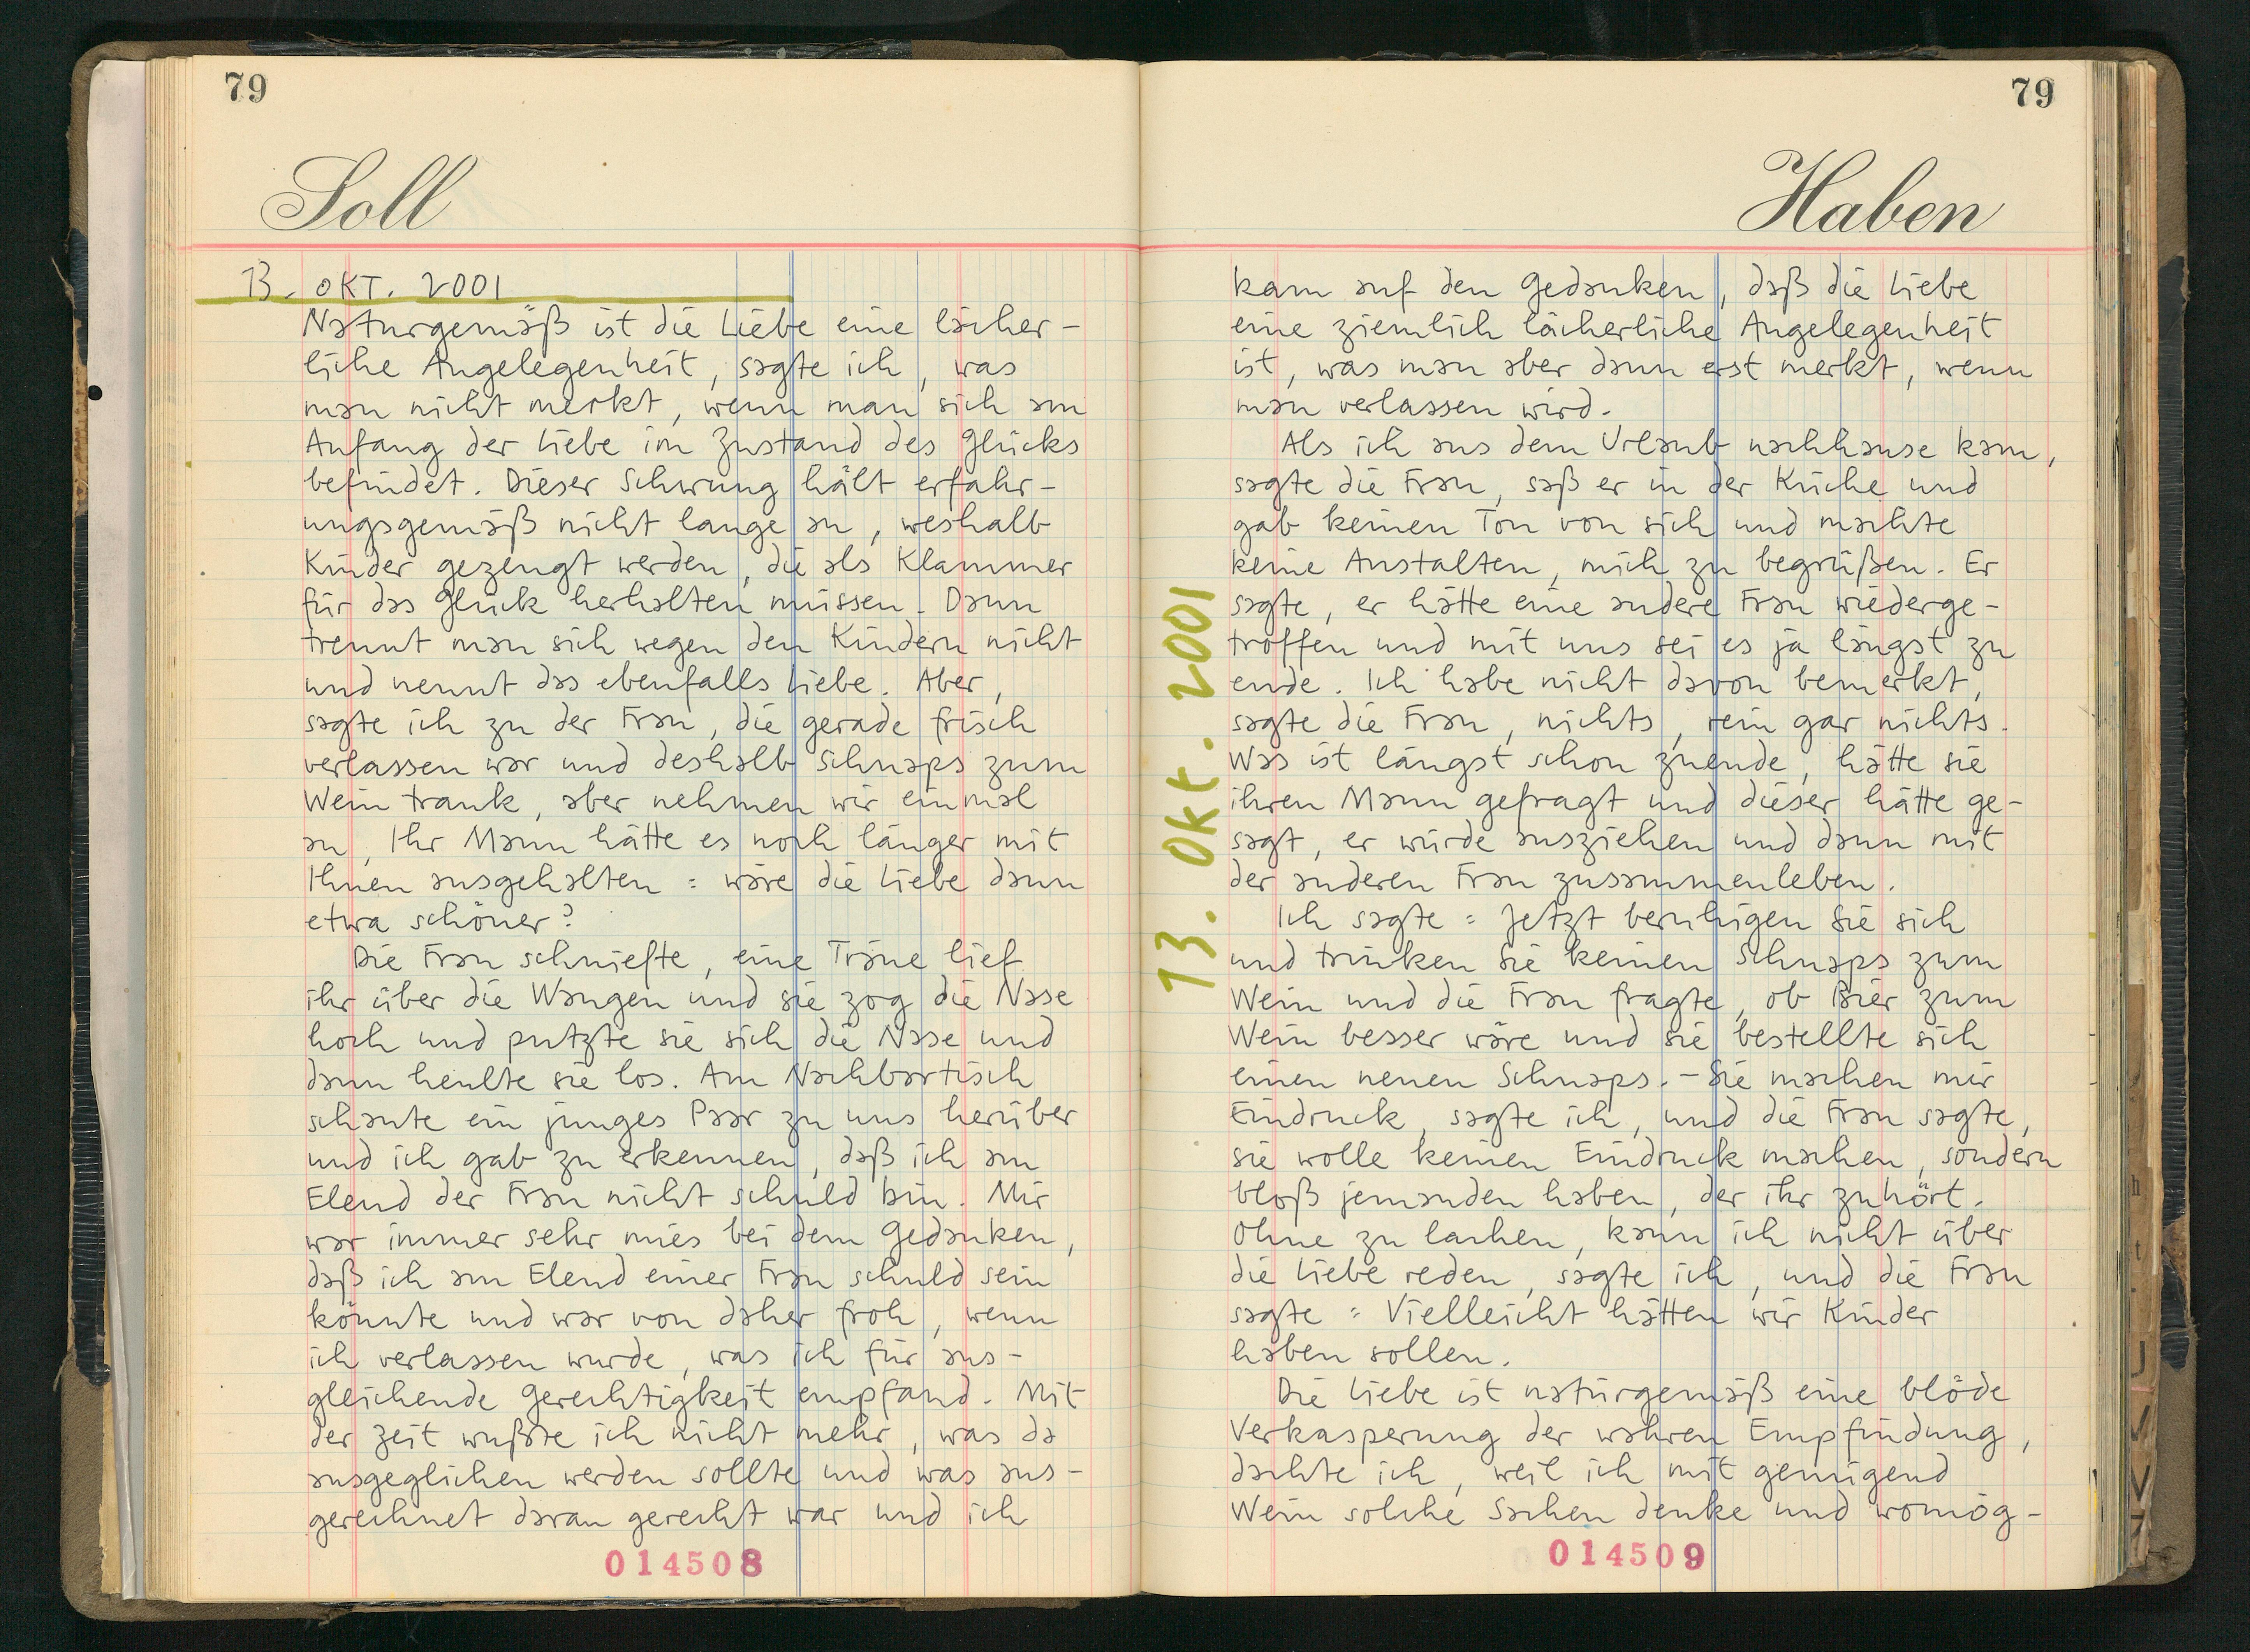 79
Soll
13. OKT. 2001
Naturgemäß ist die Liebe eine lächer-
liche Angelegenheit, sagte ich, was
man nicht merkt, wenn man sich am
Anfang der Liebe im Zustand des Glücks
befindet. Dieser Schwung hält erfahr-
ungsgemäß nicht lange an, weshalb
Kinder gezeugt werden, die als Klammer
für das Glück herhalten müssen. Dann
trennt man sich wegen den Kindern nicht
und nennt das ebenfalls Liebe. Aber,
sagte ich zu der Frau, die gerade frisch
verlassen war und deshalb Schnaps zum
Wein trank, aber nehmen wir einmal
an, Ihr Mann hätte es noch länger mit
Ihnen ausgehalten: wäre die Liebe dann
etwa schöner?
Die Frau schniefte, eine Träne lief
ihr über die Wangen und sie zog die Nase
hoch und putzte sie sich die Nase und
dann heulte sie los. Am Nachbartisch
schaute ein junges Paar zu uns herüber
und ich gab zu erkennen, daß ich am
Elend der Frau nicht schuld bin. Mir
war immer sehr mies bei dem Gedanken,
daß ich am Elend einer Frau schuld sein
könnte und war von daher froh, wenn
ich verlassen wurde, was ich für aus-
gleichende Gerechtigkeit empfand. Mit
der Zeit wußte ich nicht mehr, was da
ausgeglichen werden sollte und was aus-
gerechnet daran gerecht war und ich
014508
79
Haben
13. Okt. 2001
kam auf den Gedanken, daß die Liebe
eine ziemlich lächerliche Angelegenheit
ist, was man aber dann erst merkt, wenn
man verlassen wird.
Als ich aus dem Urlaub nachhause kam,
sagte die Frau, saß er in der Küche und
gab keinen Ton von sich und machte
keine Anstalten, mich zu begrüßen. Er
sagte, er hätte eine andere Frau wiederge-
troffen und mit uns sei es ja längst zu
ende. Ich habe nicht davon bemerkt,
sagte die Frau, nichts, rein gar nichts.
Was ist längst schon zuende, hätte sie
ihren Mann gefragt und dieser hätte ge-
sagt, er würde ausziehen und dann mit
der anderen Frau zusammenleben.
Ich sagte: Jetzt beruhigen Sie sich
und trinken Sie keinen Schnaps zum
Wein und die Frau fragte, ob Bier zum
Wein besser wäre und sie bestellte sich
einen neuen Schnaps. – Sie machen mir
Eindruck, sagte ich, und die Frau sagte,
sie wolle keinen Eindruck machen, sondern
bloß jemanden haben, der ihr zuhört.
Ohne zu lachen, kann ich nicht über
die Liebe reden, sagte ich, und die Frau
sagte: Vielleicht hätten wir Kinder
haben sollen.
Die Liebe ist naturgemäß eine blöde
Verkasperung der wahren Empfindung,
dachte ich, weil ich mit genügend
Wein solche Sachen denke und womög-
014509